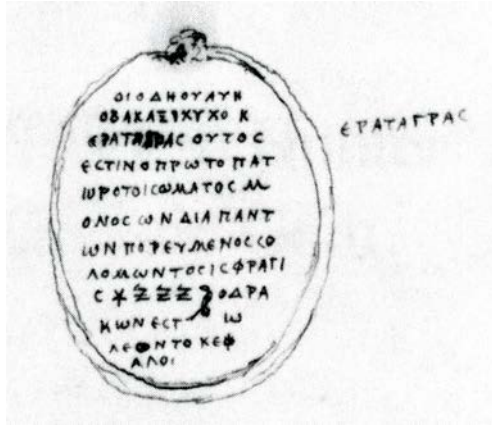 ΟΙΟΔΗΟΥΛΥΗ
ΟΒΑΚΑΞΙΧΥΧΟ Κ
ΕΡΑΤΑΓΡΑC ΟΥΤΟC
ΕCΤΙΝΟΠΡΩΤΟΠΑΤ
ΙΩΡΟΤΟΙCΩΜΑΤΟC Μ
ΟΝΟC ΩΝ ΔΙΑ ΠΑΝΤ
ΙΩΝ ΠΟΡΕΥΜΕΝΟC CΟ
ΛΟΜΩΝΤΟCΙCΦΡΑΓΙ
C ΟΔΡΑ
ΚΩΝΕCΤ Ιω
ΛΕΦΝΤΟΚΕΦ
ΑΛΟΙ
ΕΡΑΤΑΓΡΑC